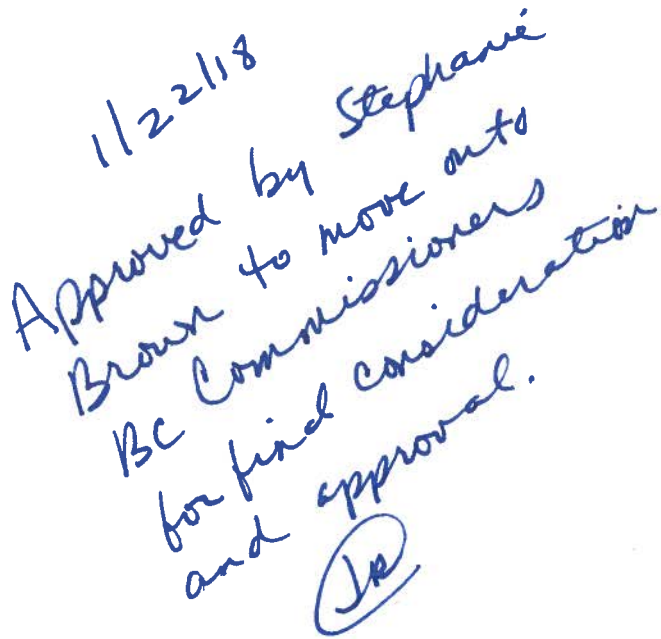 1/22/18
Approved by Stephanie
Brown to move onto
BC Commissioners
for final consideration
and approval.
JR